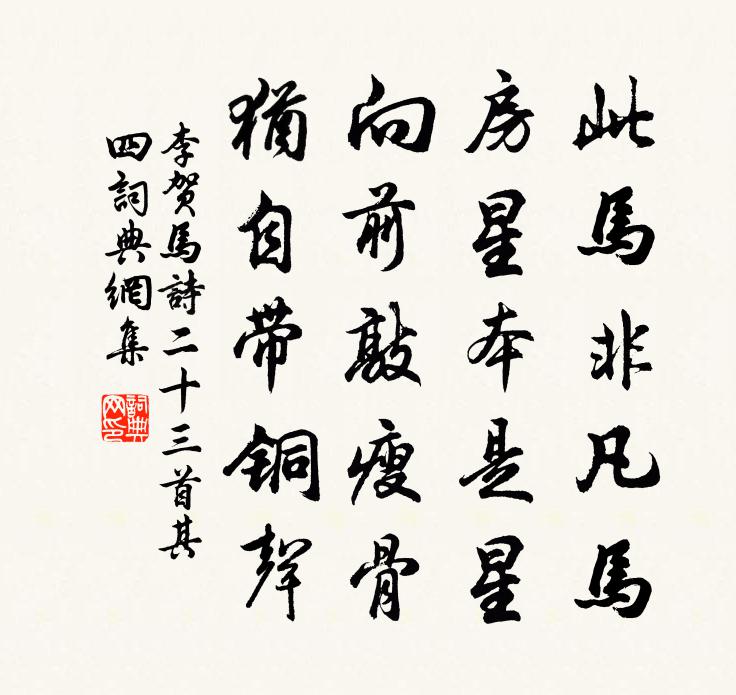 此馬非凡馬
房星本是星
向前敲瘦骨
猶自帶銅聲
李賀馬詩二十三首其
四詞典網集
詞典
网印